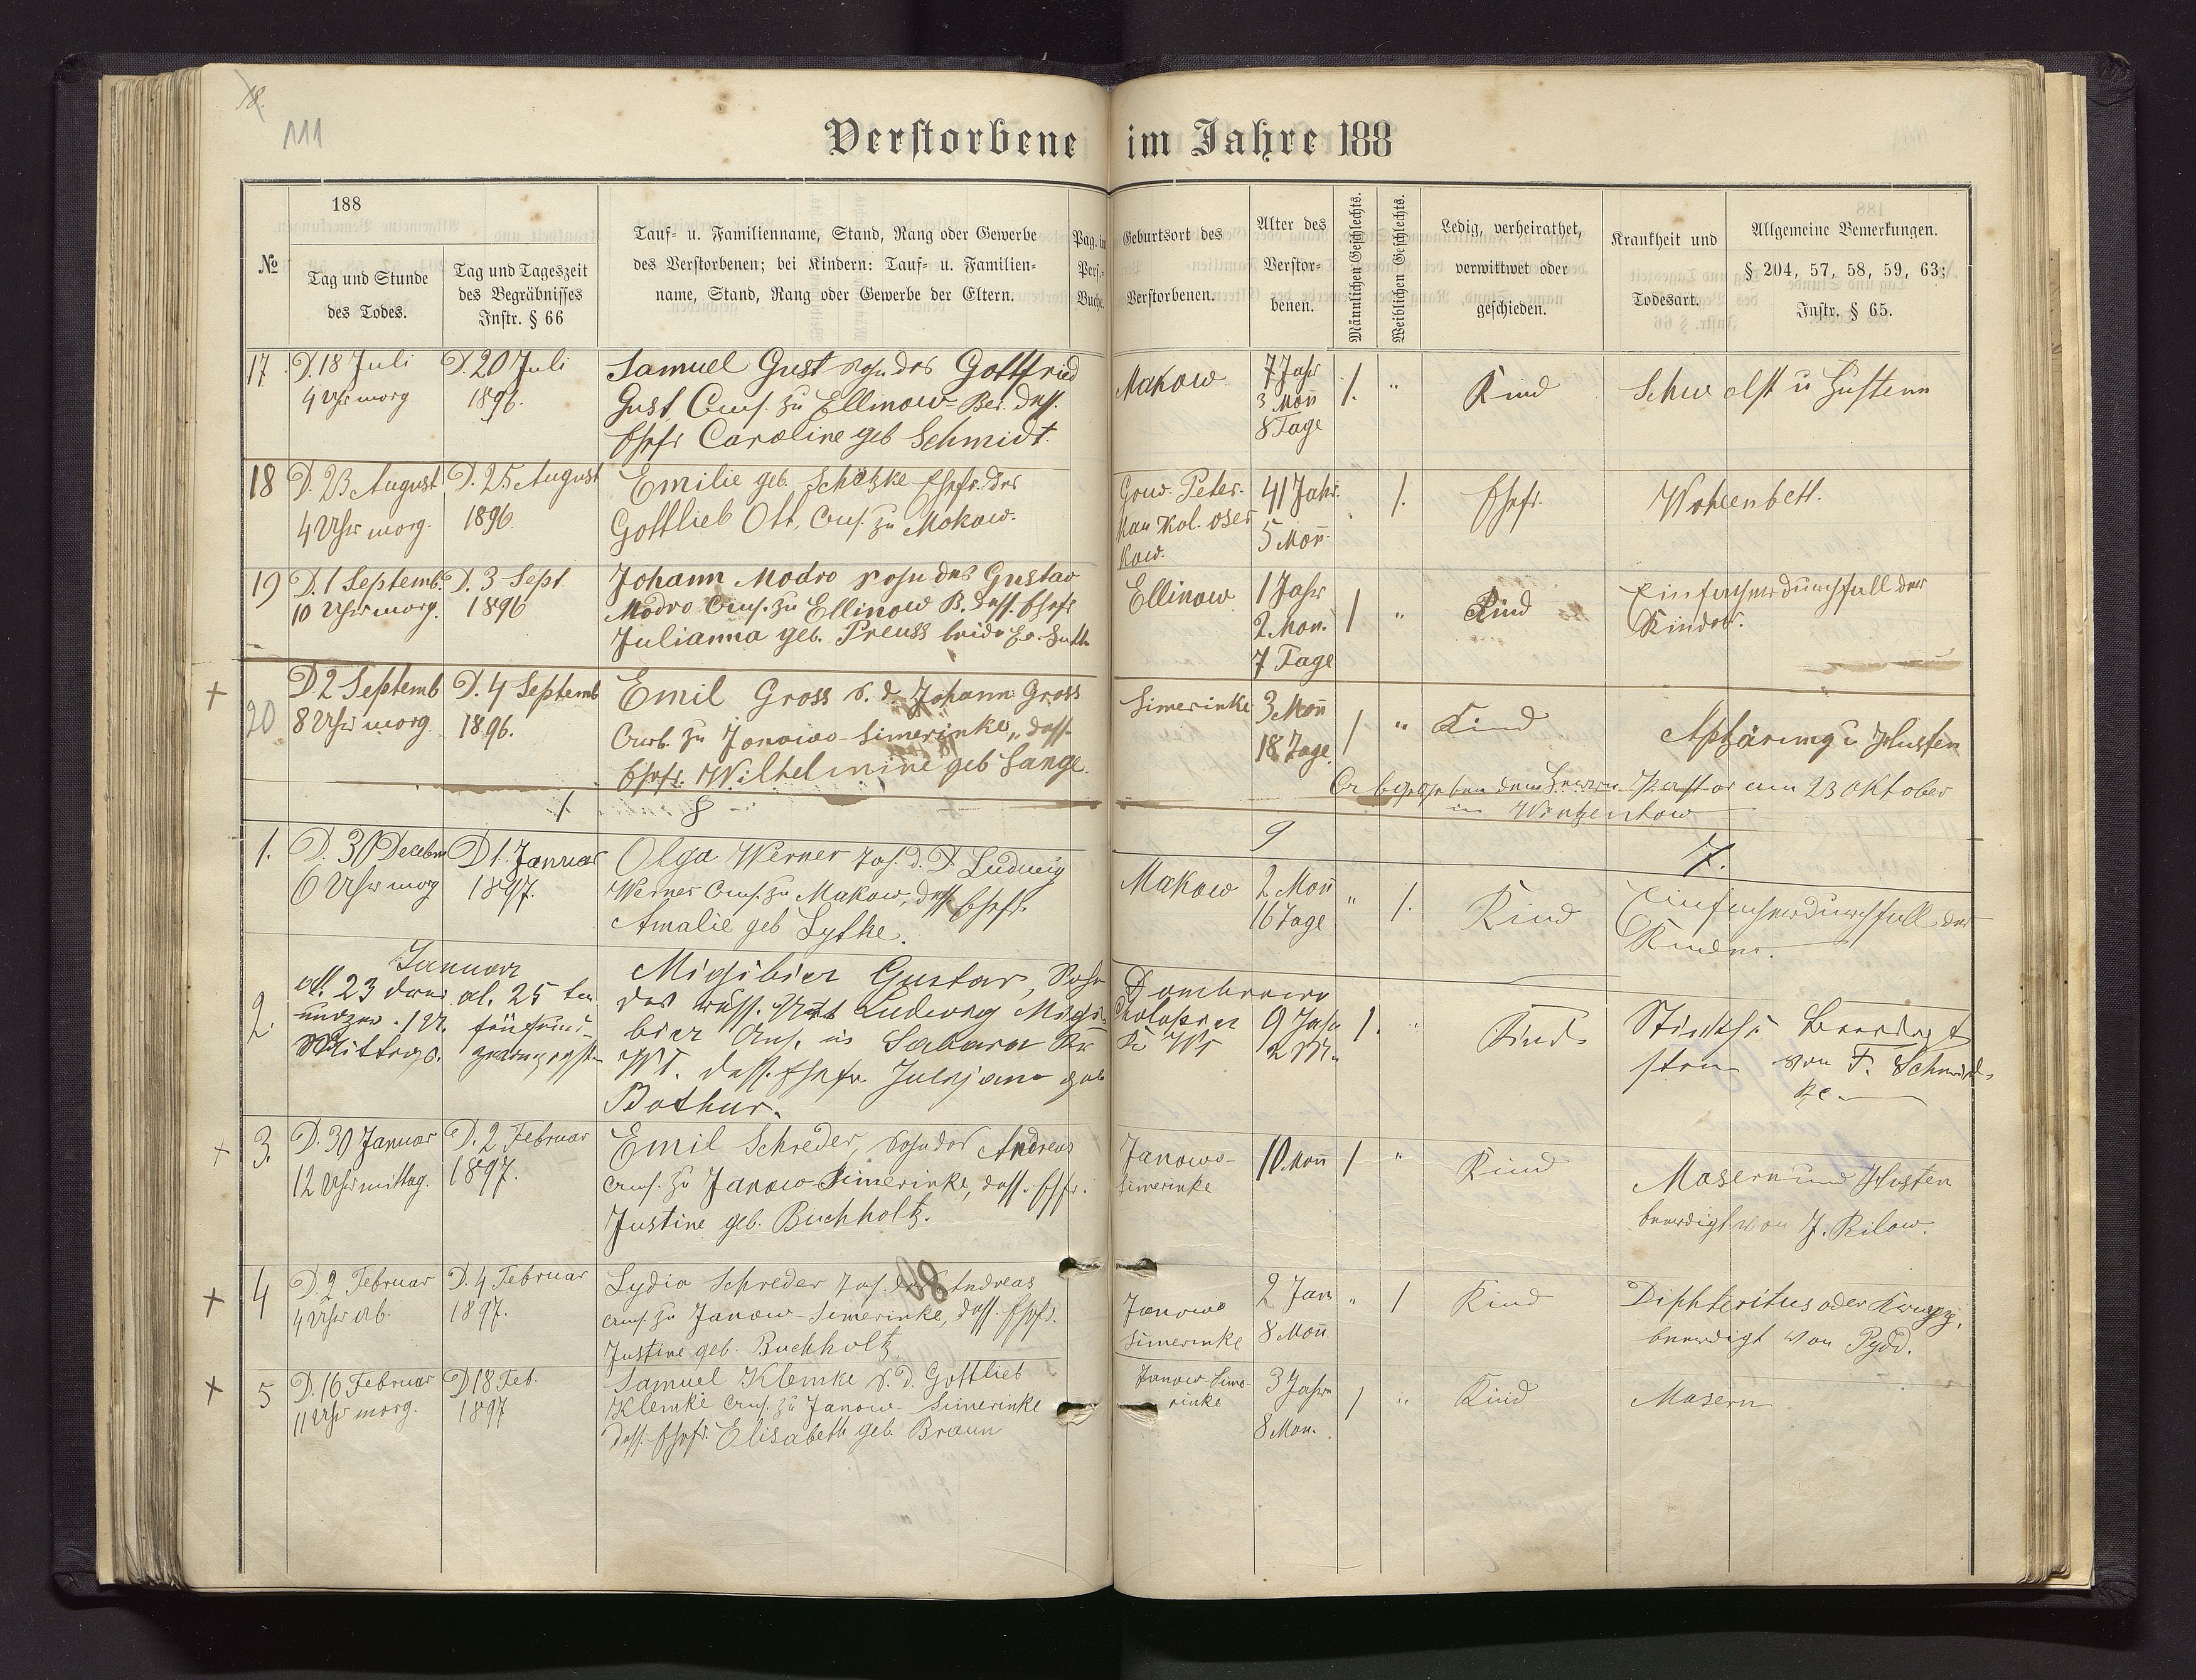 18.
111
Verstorbene im Jahre 188
№
188
Tag und Stunde
des Todes.
Tag und Tageszeit
des Begräbnisses
Instr. § 66
Tauf- u. Familienname, Stand, Rang oder Gewerbe
des Verstorbenen; bei Kindern: Tauf- u. Familien-
name, Stand, Rang oder Gewerbe der Eltern.
Pag. im
Pers.-
Buche.
Geburtsort des
Verstorbenen.
Alter des
Verstor-
benen.
Männlichen Geschlechts.
Weiblichen Geschlechts.
Ledig, verheirathet,
verwittwet oder
geschieden.
Krankheit und
Todesart.
Allgemeine Bemerkungen.
§ 204, 57, 58, 59, 63;
Instr. § 65.
17
D. 18 Juli
4 Uhr morg.
D. 20 Juli
1896.
Samuel Gust Sohn des Gottfried
Gust, zu Ellinow- dess.
Ehefr Caroline geb Schmidt.
Makow.
7 Jahr
3 Mon
8 Tage
1.
"
Kind
u Husten
18
D. 23 August
4 Uhr morg.
D. 25 August
1896.
Emilie geb. Schötzke Ehefr. des
Gottlieb Ott, zu Makow.
Gouv. Peter-
kau Kol.
kow.
41 Jahr.
5 Mon.
1.
Ehefr.
Wohenbett.
19
D. 1 Septemb.
10 Uhr morg.
D. 3 Sept
1896
Johann Modro Sohn des Gustav
Modro zu Ellinow B. dess. Ehefr
Julianna geb. Preuss beide
Ellinow
1 Jahr
2 Mon.
7 Tage
1
"
Kind
Einfacher durchfall der
Kinder.
+
20
D 2 Septemb
8 Uhr morg.
D. 4 Septemb
1896.
Emil Gross S. d. Johann Gross
zu Janowo-Simerinke, dess.
Ehefr. Wilhelmine geb Lange.
Simerinke
3 Mon
18 Tage.
1
"
Kind
u Husten
dem Herrn Pastor am 23 Oktober
in
1
8
9
7.
1.
D. 30 Decebm
6 Uhr morg
D 1. Januar
1897.
Olga Werner d. Ludwig
Werner zu Makow, dess Ehefr.
Amalie geb Lytke.
Makow
2 Mon
16 Tage
"
1.
Kind
Einfacher durchfall der
Kinder.
2.
Januar
d. 23
Mittags.
d. 25 ten
Gustav, Sohn
des russ. Unt Ludwig
in Sabarra
dess. Ehefr. Juljana geb
Bothur.
Dombrowa
9 Jahr
2 M.
1.
"
Kind
Beerdigt
von F.
+
3.
D. 30 Januar
12 Uhr mittag.
D. 2 Februar
1897.
Emil Schreder, Sohn des Andreas
zu Janow-Simerinke, dess. Ehefr.
Justine geb. Buchholtz.
Janowo-
Simerinke
10 Mon
1
"
Kind
Masern und Husten
beerdigt von J. Rilow.
+
4
D. 2 Februar
4 Uhr ab.
D. 4 Februar
1897.
68
Lydia Schreder des Andreas
zu Janow-Simerinke, dess. Ehefr.
Justine geb. Buchholtz
Janowo
Simerinke
2 Jah
8 Mon
"
1
Kind
Diphteritus oder
beerdigt von Pydd.
+
5
D. 16 Februar
11 Uhr morg.
D 18 Feb.
1897
Samuel Klemke S. d. Gottlieb
Klemke zu Janow-Simerinke
dess. Ehefr. Elisabeth geb. Braun
Janow Sime-
rinke
3 Jahr
8 Mon.
1
"
Kind
Masern